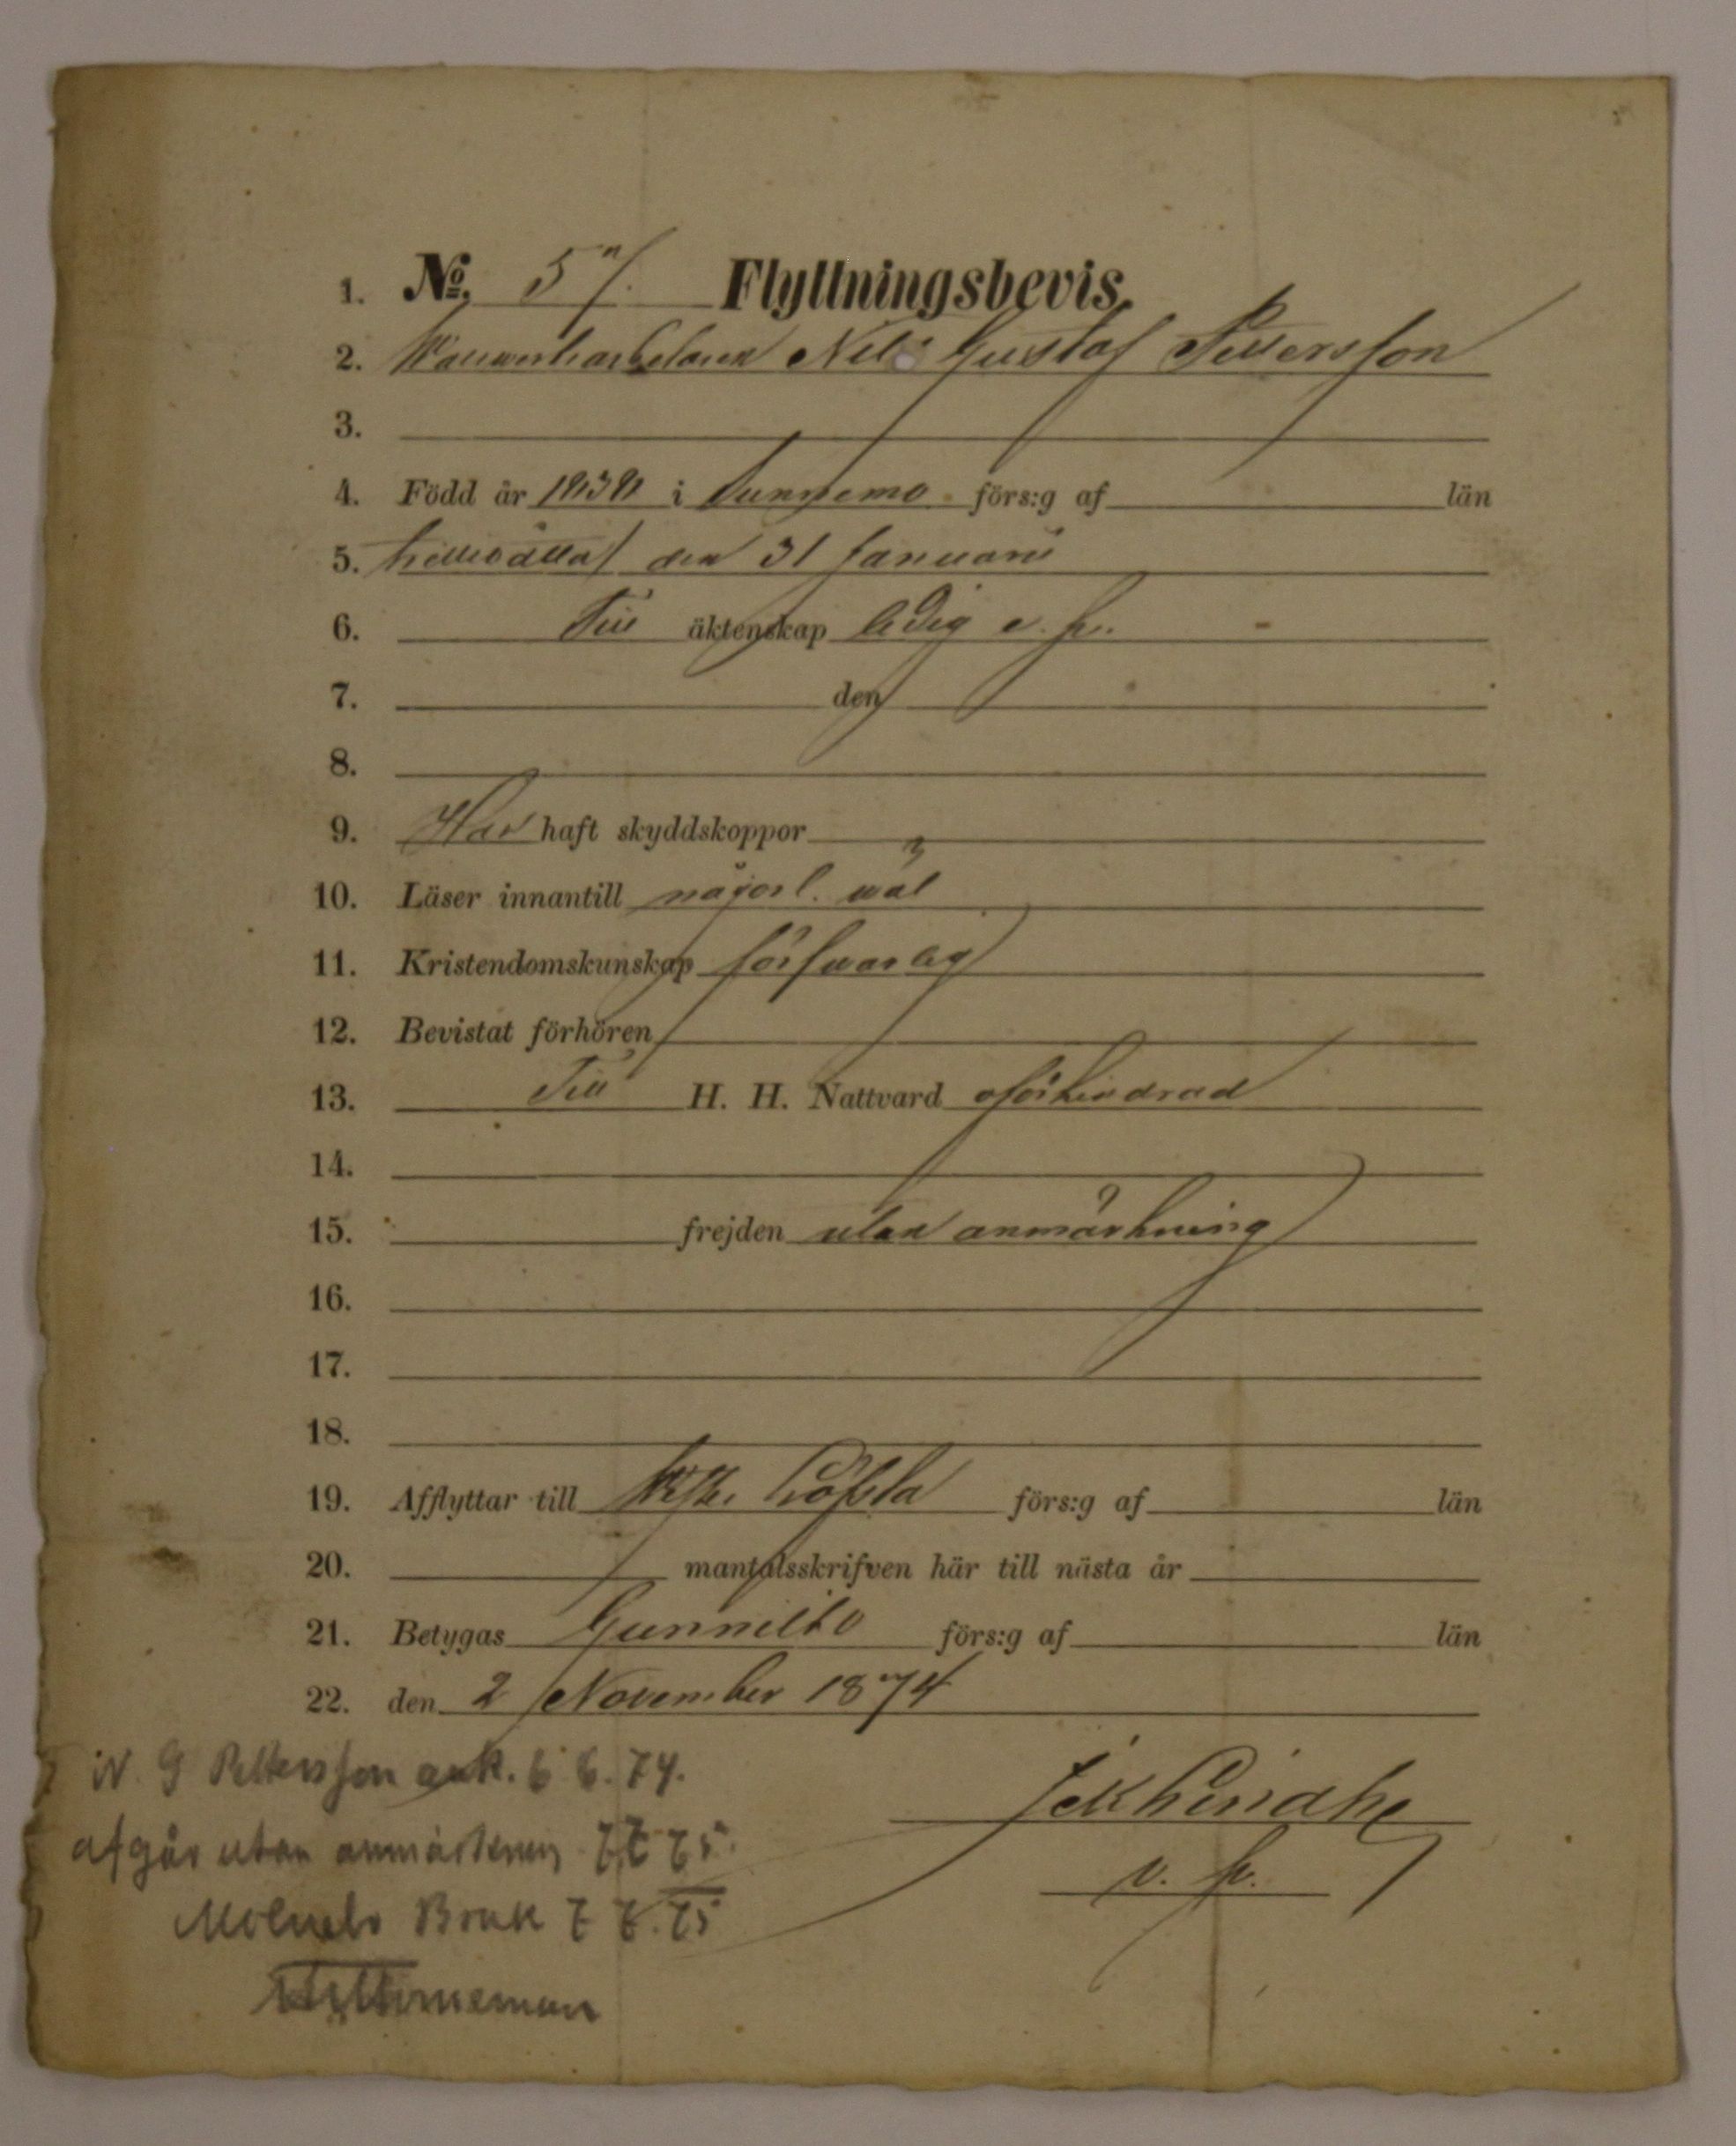 1. No. 57. Flyttningsbevis.
2. Nils Gustaf Pettersson
3.
4. Född år 1838 i Sunnemo förs:g af län
5. trettioåtta/ den 31 Januarii
6. Till äktenskap ledig
7. den
8.
9. Har haft skyddskoppor
10. Läser innantill någorl. wäl
11. Kristendomskunskap försvarlig
12. Bevistat förhören
13. Till H. H. Nattvard oförhindrad
14.
15. frejden utan anmärkning
16.
17.
18.
19. Afflyttar till Löfsta förs:g af län
20. mantalsskrifven här till nästa år
21. Betygas Gunnilbo förs:g af län
22. den 2 November 1874
N. G Pettersson ank. 6 6. 74.
afgår utan 7 7 75.
v. p.
Bruk 7 7. 75